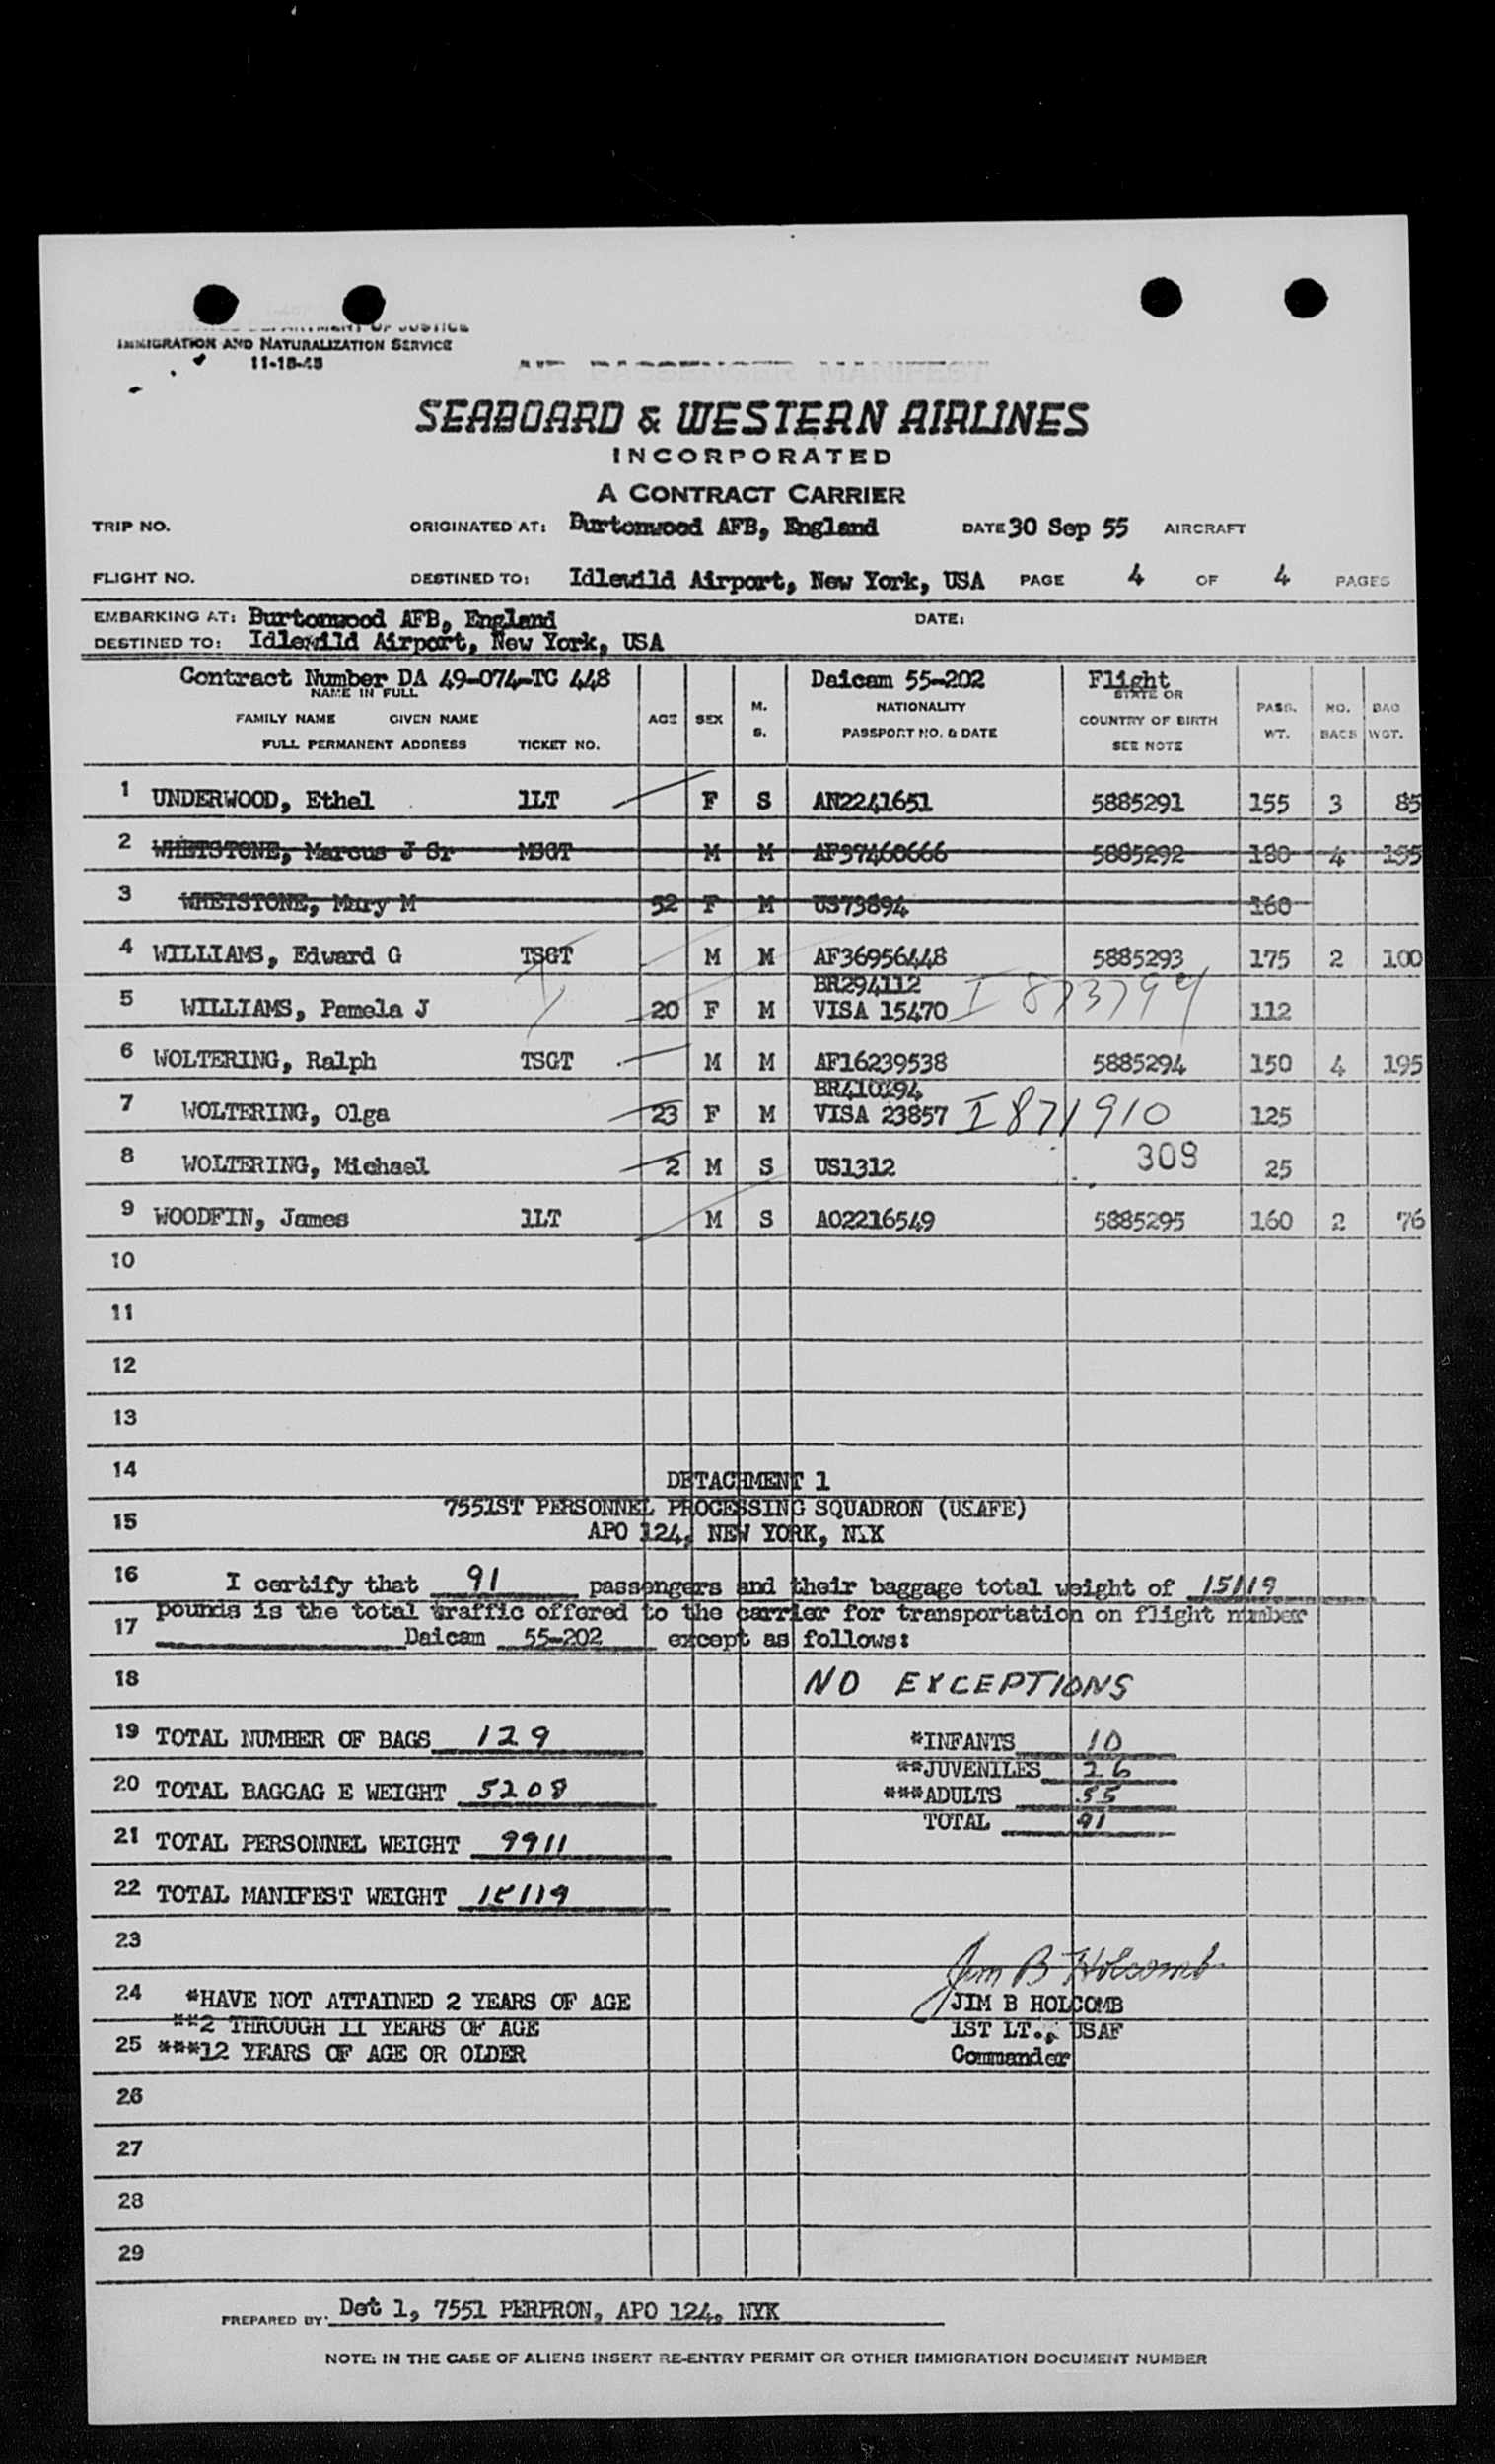 DEPARTMENT OF JUSTICE
IMMIGRATION AND NATURALIZATION SERVICE
11-18-48
AIR PASSENGER MANIFEST
SEABOARD & WESTERN AIRLINES
INCORPORATED
A CONTRACT CARRIER
TRIP NO. ORIGINATED AT: Burtonwood AFB, England DATE 30 Sep 55 AIRCRAFT
FLIGHT NO. DESTINED TO: Idlewild Airport, New York, USA PAGE 4 OF 4 PAGES
EMBARKING AT: Burtonwood AFB, England DATE:
DESTINED TO: Idlewild Airport, New York, USA
Contract Number DA 49-074-TC 448 Daicam 55-202 Flight
NAME IN FULL STATE OR
FAMILY NAME GIVEN NAME AGE SEX M. S. NATIONALITY COUNTRY OF BIRTH PASS. WT. NO. BAGS BAG WGT.
FULL PERMANENT ADDRESS TICKET NO. PASSPORT NO. & DATE SEE NOTE
1 UNDERWOOD, Ethel 1LT F S AN2241651 5885291 155 3 85
2 WHETSTONE, Marcus J Sr MSGT M M AF37460666 5885292 180 4 195
3 WHETSTONE, Mary M 52 F M US73894 160
4 WILLIAMS, Edward G TSGT M M AF36956448 5885293 175 2 100
BR294112
5 WILLIAMS, Pamela J 20 F M VISA 15470 I 873794 112
6 WOLTERING, Ralph TSGT M M AF16239538 5885294 150 4 195
BR410194
7 WOLTERING, Olga 23 F M VISA 23857 I 871910 125
8 WOLTERING, Michael 2 M S US1312 309 25
9 WOODFIN, James 1LT M S AO2216549 5885295 160 2 76
10
11
12
13
14 DETACHMENT 1
7551ST PERSONNEL PROCESSING SQUADRON (USAFE)
15 APO 124, NEW YORK, N.Y.
16 I certify that 91 passengers and their baggage total weight of 15119
17 pounds is the total traffic offered to the carrier for transportation on flight number
Daicam 55-202 except as follows:
18 NO EXCEPTIONS
19 TOTAL NUMBER OF BAGS 129 *INFANTS 10
**JUVENILES 26
20 TOTAL BAGGAG E WEIGHT 5208 ***ADULTS 55
TOTAL 91
21 TOTAL PERSONNEL WEIGHT 9911
22 TOTAL MANIFEST WEIGHT 15119
23
Jim B Holcomb
24 *HAVE NOT ATTAINED 2 YEARS OF AGE JIM B HOLCOMB
**2 THROUGH 11 YEARS OF AGE 1ST LT., USAF
25 ***12 YEARS OF AGE OR OLDER Commander
26
27
28
29
PREPARED BY: Det 1, 7551 PERPRON, APO 124, NYK
NOTE: IN THE CASE OF ALIENS INSERT RE-ENTRY PERMIT OR OTHER IMMIGRATION DOCUMENT NUMBER